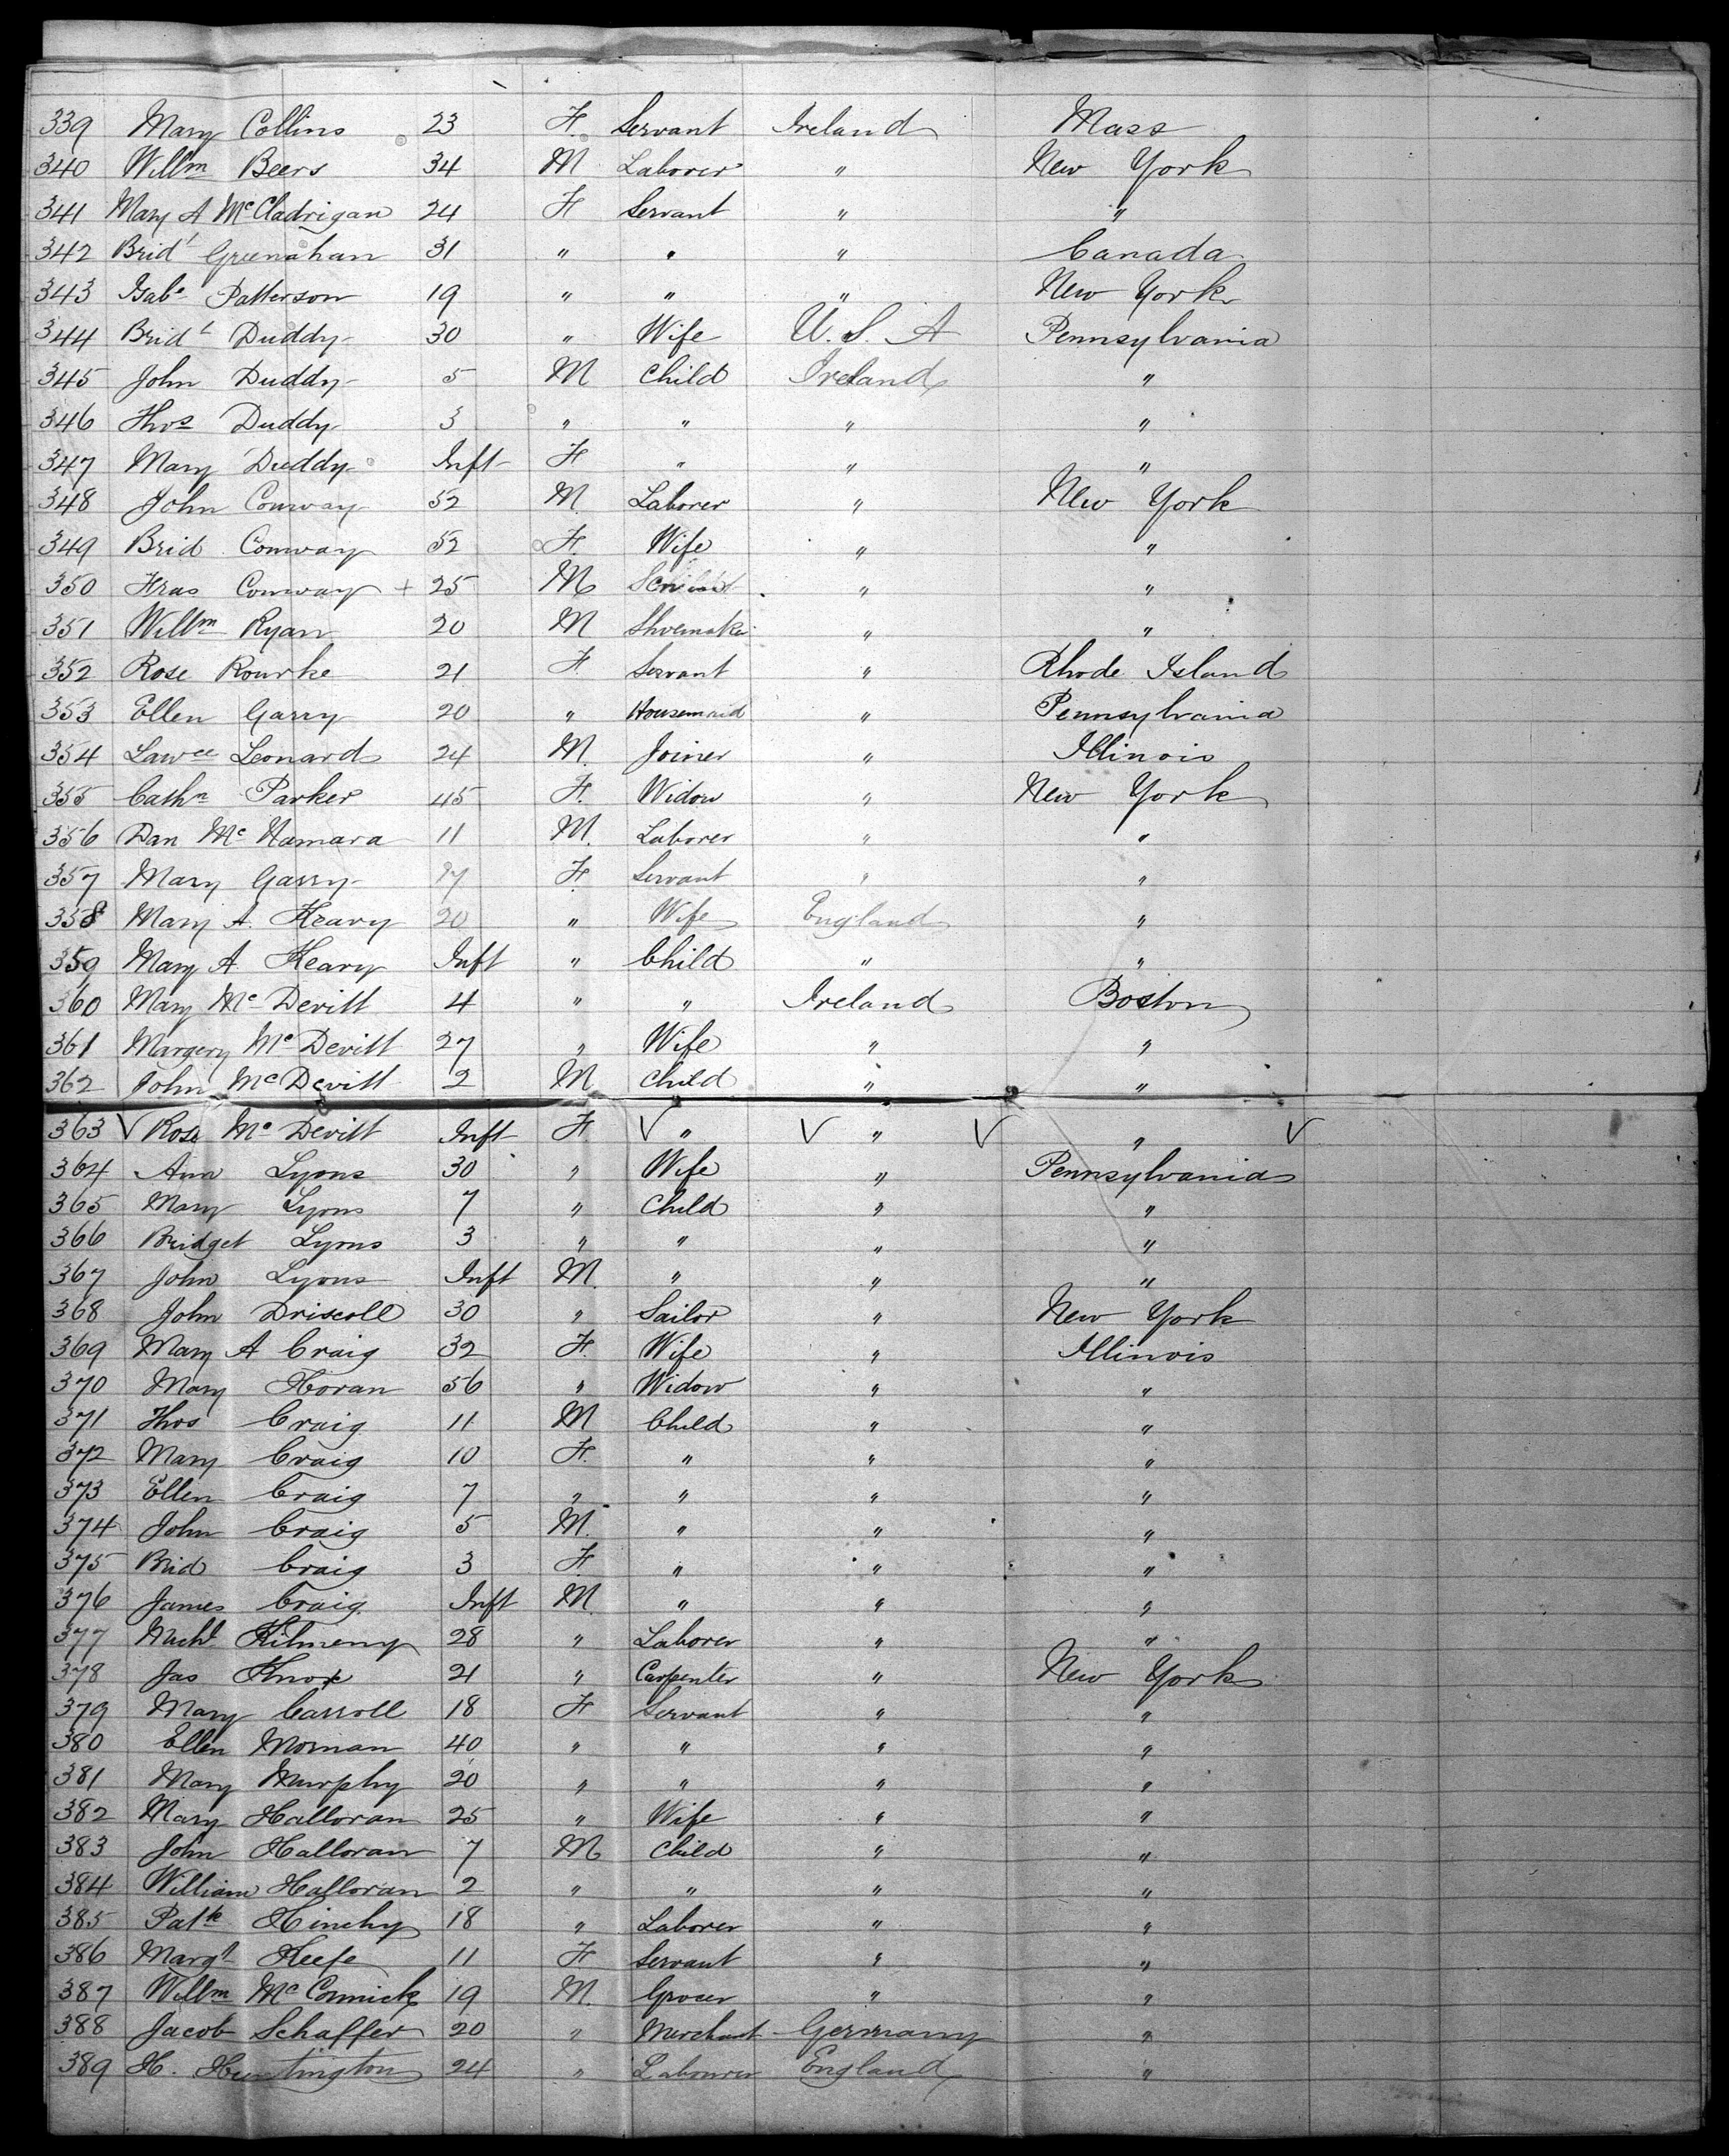 339 Mary Collins 23 F. Servant Ireland Mass
340 Willm Beers 34 M Laborer " New York
341 Mary A McCladrigan 24 F Servant " "
342 Bridt Greenahan 31 " " " Canada
343 Isabe Patterson 19 " " " New York
344 Bridt Duddy 30 " Wife U.S.A Pennsylvania
345 John Duddy 5 M Child Ireland "
346 Thos Duddy 3 " " " "
347 Mary Duddy Inft F " " "
348 John Conway 52 M. Laborer " New York
349 Brid Conway 52 F. Wife " "
350 Fras Conway + 25 M " "
351 Willm Ryan 20 M Shoemaker " "
352 Rose Rourke 21 F. Servant " Rhode Island
353 Ellen Garry 20 " Housemaid " Pennsylvania
354 Lawce Leonard 24 M. Joiner " Illinois
355 Cathn Parker 45 F. Widow " New York
356 Dan McNamara 11 M. Laborer " "
357 Mary Garry F. Servant " "
358 Mary A. Keary 20 " Wife England "
359 Mary A. Keary Inft " Child " "
360 Mary McDevitt 4 " " Ireland Boston
361 Margery McDevitt 27 " Wife " "
362 John McDevitt 2 M Child " "
363 Rose McDevitt Inft F. " " "
364 Ann Lyons 30 " Wife " Pennsylvania
365 Mary Lyons 7 " Child " "
366 Bridget Lyons 3 " " " "
367 John Lyons Inft M. " " "
368 John Driscoll 30 " Sailor " New York
369 Mary A Craig 32 F. Wife " Illinois
370 Mary Horan 56 " Widow " "
371 Thos Craig 11 M Child " "
372 Mary Craig 10 F. " " "
373 Ellen Craig 7 " " " "
374 John Craig 5 M. " " "
375 Brid Craig 3 F. " " "
376 James Craig Inft M. " " "
377 Michl Kilmeny 28 " Laborer " "
378 Jas Knox 21 " Carpenter " New York
379 Mary Carroll 18 F Servant " "
380 Ellen Mornan 40 " " " "
381 Mary Murphy 20 " " " "
382 Mary Halloran 25 " Wife " "
383 John Halloran 7 M Child " "
384 William Halloran 2 " " " "
385 Patk Hinchy 18 " Laborer " "
386 Margt Keefe 11 F Servant " "
387 Willm McCormick 19 M. Grocer " "
388 Jacob Schaffer 20 " Merchant Germany "
389 H. Huntington 24 " Labourer England "